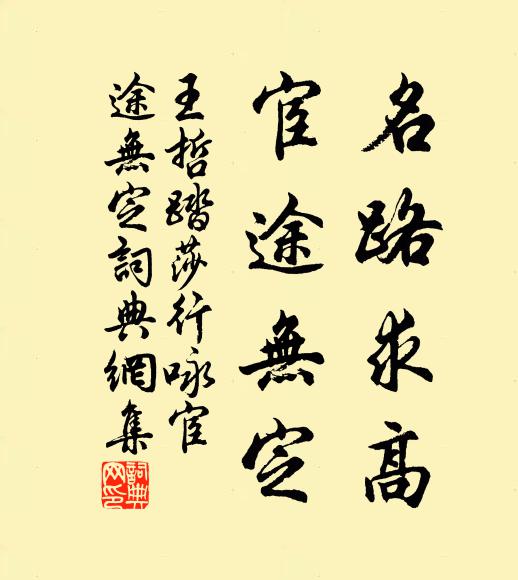 名路求高
宦途無定
王哲踏莎行咏宦
途無定詞典網集
詞典
网印